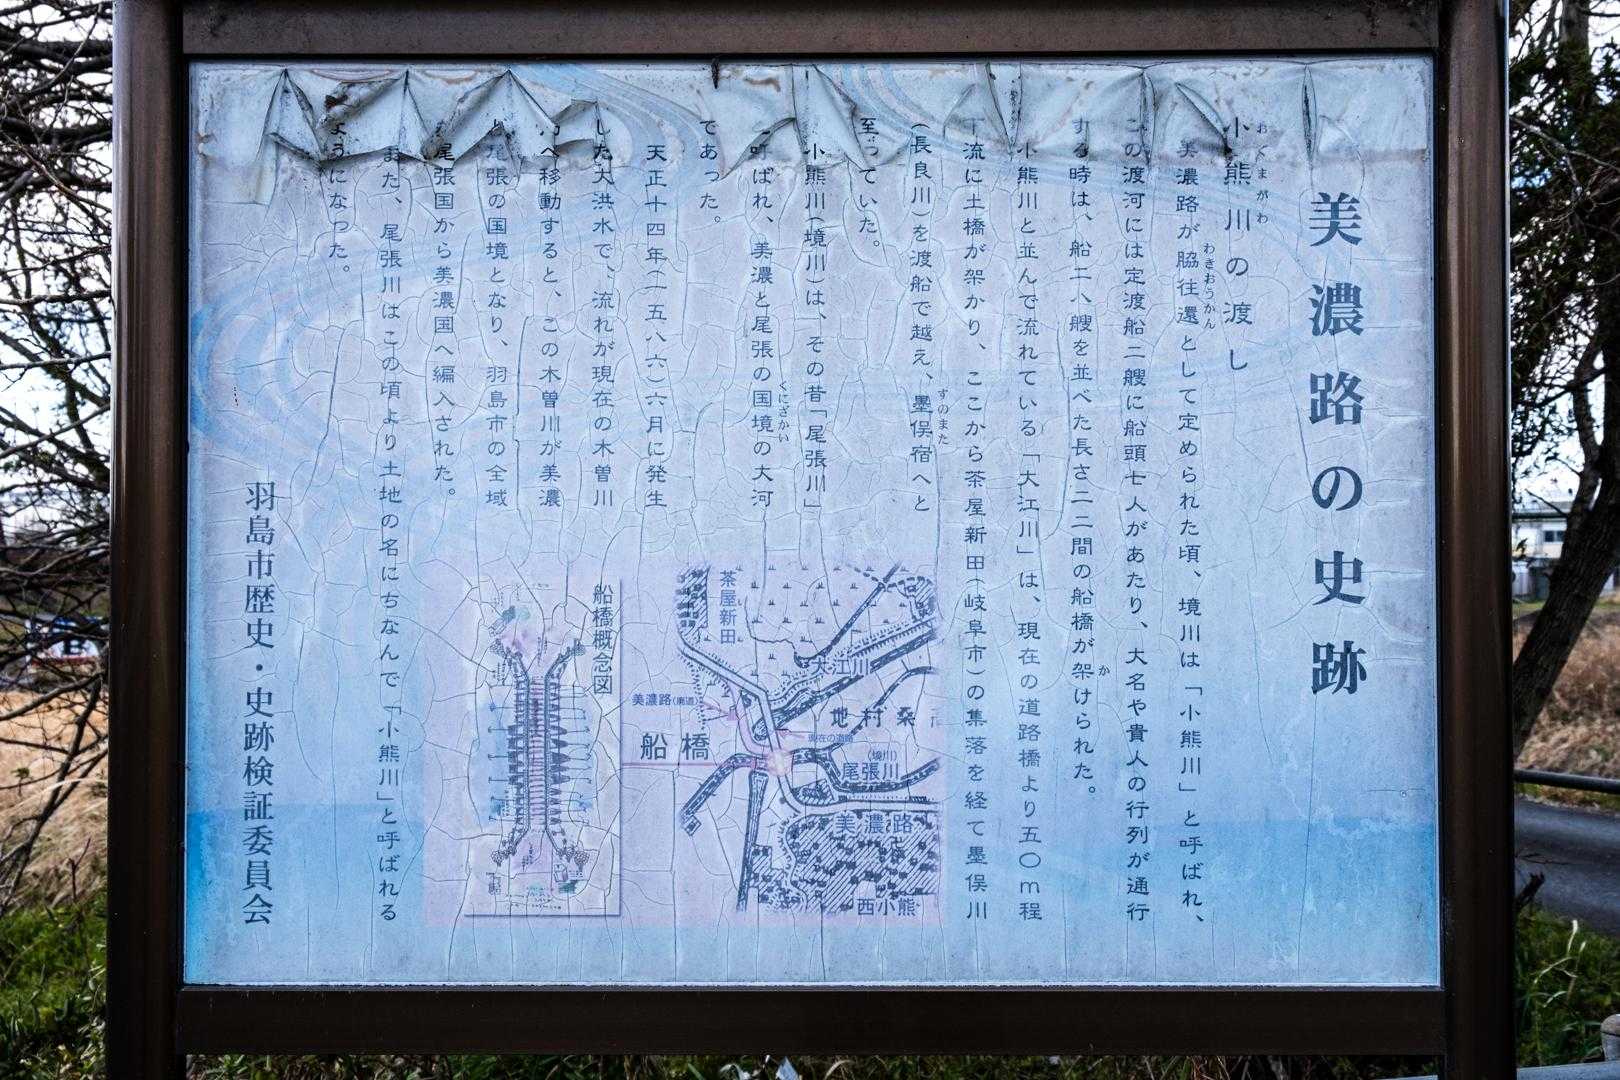 美濃路の史跡
小熊川の渡し
おぐまがわ
美濃路が脇往還として定められた頃、境川は「小熊川」と呼ばれ、
わきおうかん
この渡河には定渡船二艘に船頭七人があたり、大名や貴人の行列が通行
する時は、船二八艘を並べた長さ二二間の船橋が架けられた。
か
小熊川と並んで流れている「大江川」は、現在の道路橋より五〇m程
下流に土橋が架かり、ここから茶屋新田(岐阜市)の集落を経て墨俣川
(長良川)を渡船で越え、墨俣宿へと
すのまた
至っていた。
小熊川(境川)は、その昔「尾張川」
と呼ばれ、美濃と尾張の国境の大河
くにざかい
であった。
天正十四年(一五八六)六月に発生
した大洪水で、流れが現在の木曽川
へ移動すると、この木曽川が美濃
と尾張の国境となり、羽島市の全域
尾張国から美濃国へ編入された。
また、尾張川はこの頃より土地の名にちなんで「小熊川」と呼ばれる
ようになった。
羽島市歴史・史跡検証委員会
茶屋新田
大江川
地村桑
現在の道路
(境川)
尾張川
美濃路
西小熊
美濃路(廃道)
船橋
船橋概念図